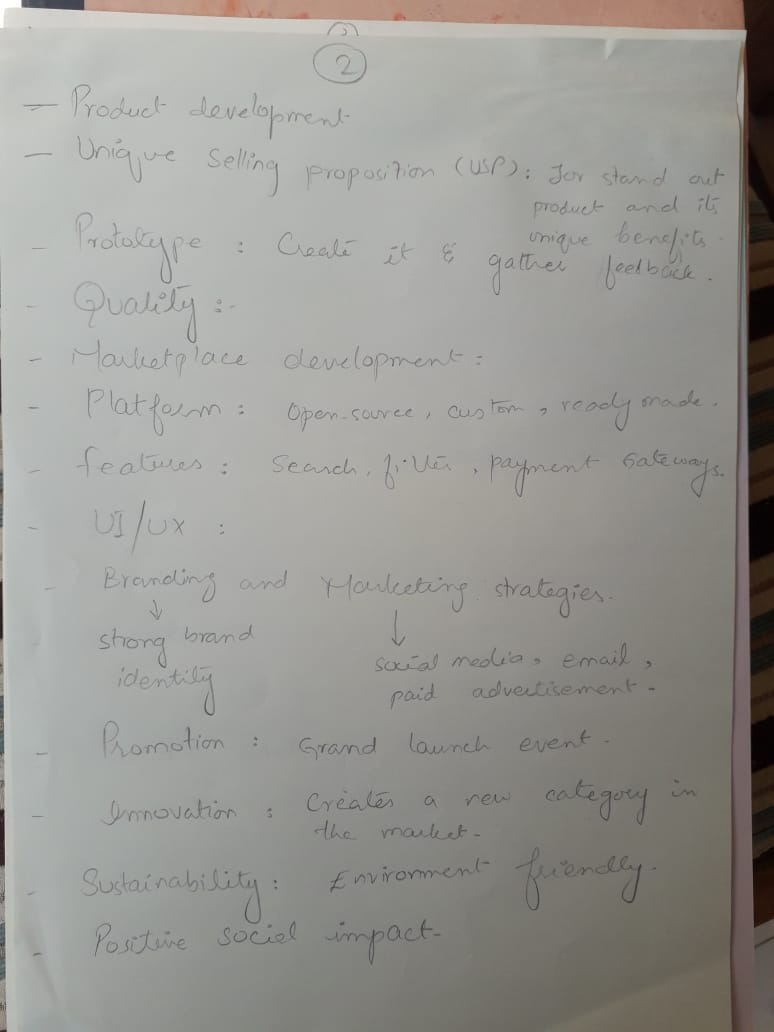 2
- Product development
- Unique Selling proposition (USP): for stand out
product and its
unique benefits.
- Prototype : Create it & gather feedback.
- Quality :-
- Marketplace development :
- Platform : Open-source, custom, ready made.
- features : Search, filter, payment Gateways.
- UI/UX :
- Branding and Marketing strategies.
↓ ↓
- strong brand
identity
social media, email,
paid advertisement -
- Promotion : Grand launch event -
- Innovation : Creates a new category in
the market -
- Sustainability : Environment friendly.
- Positive social impact -